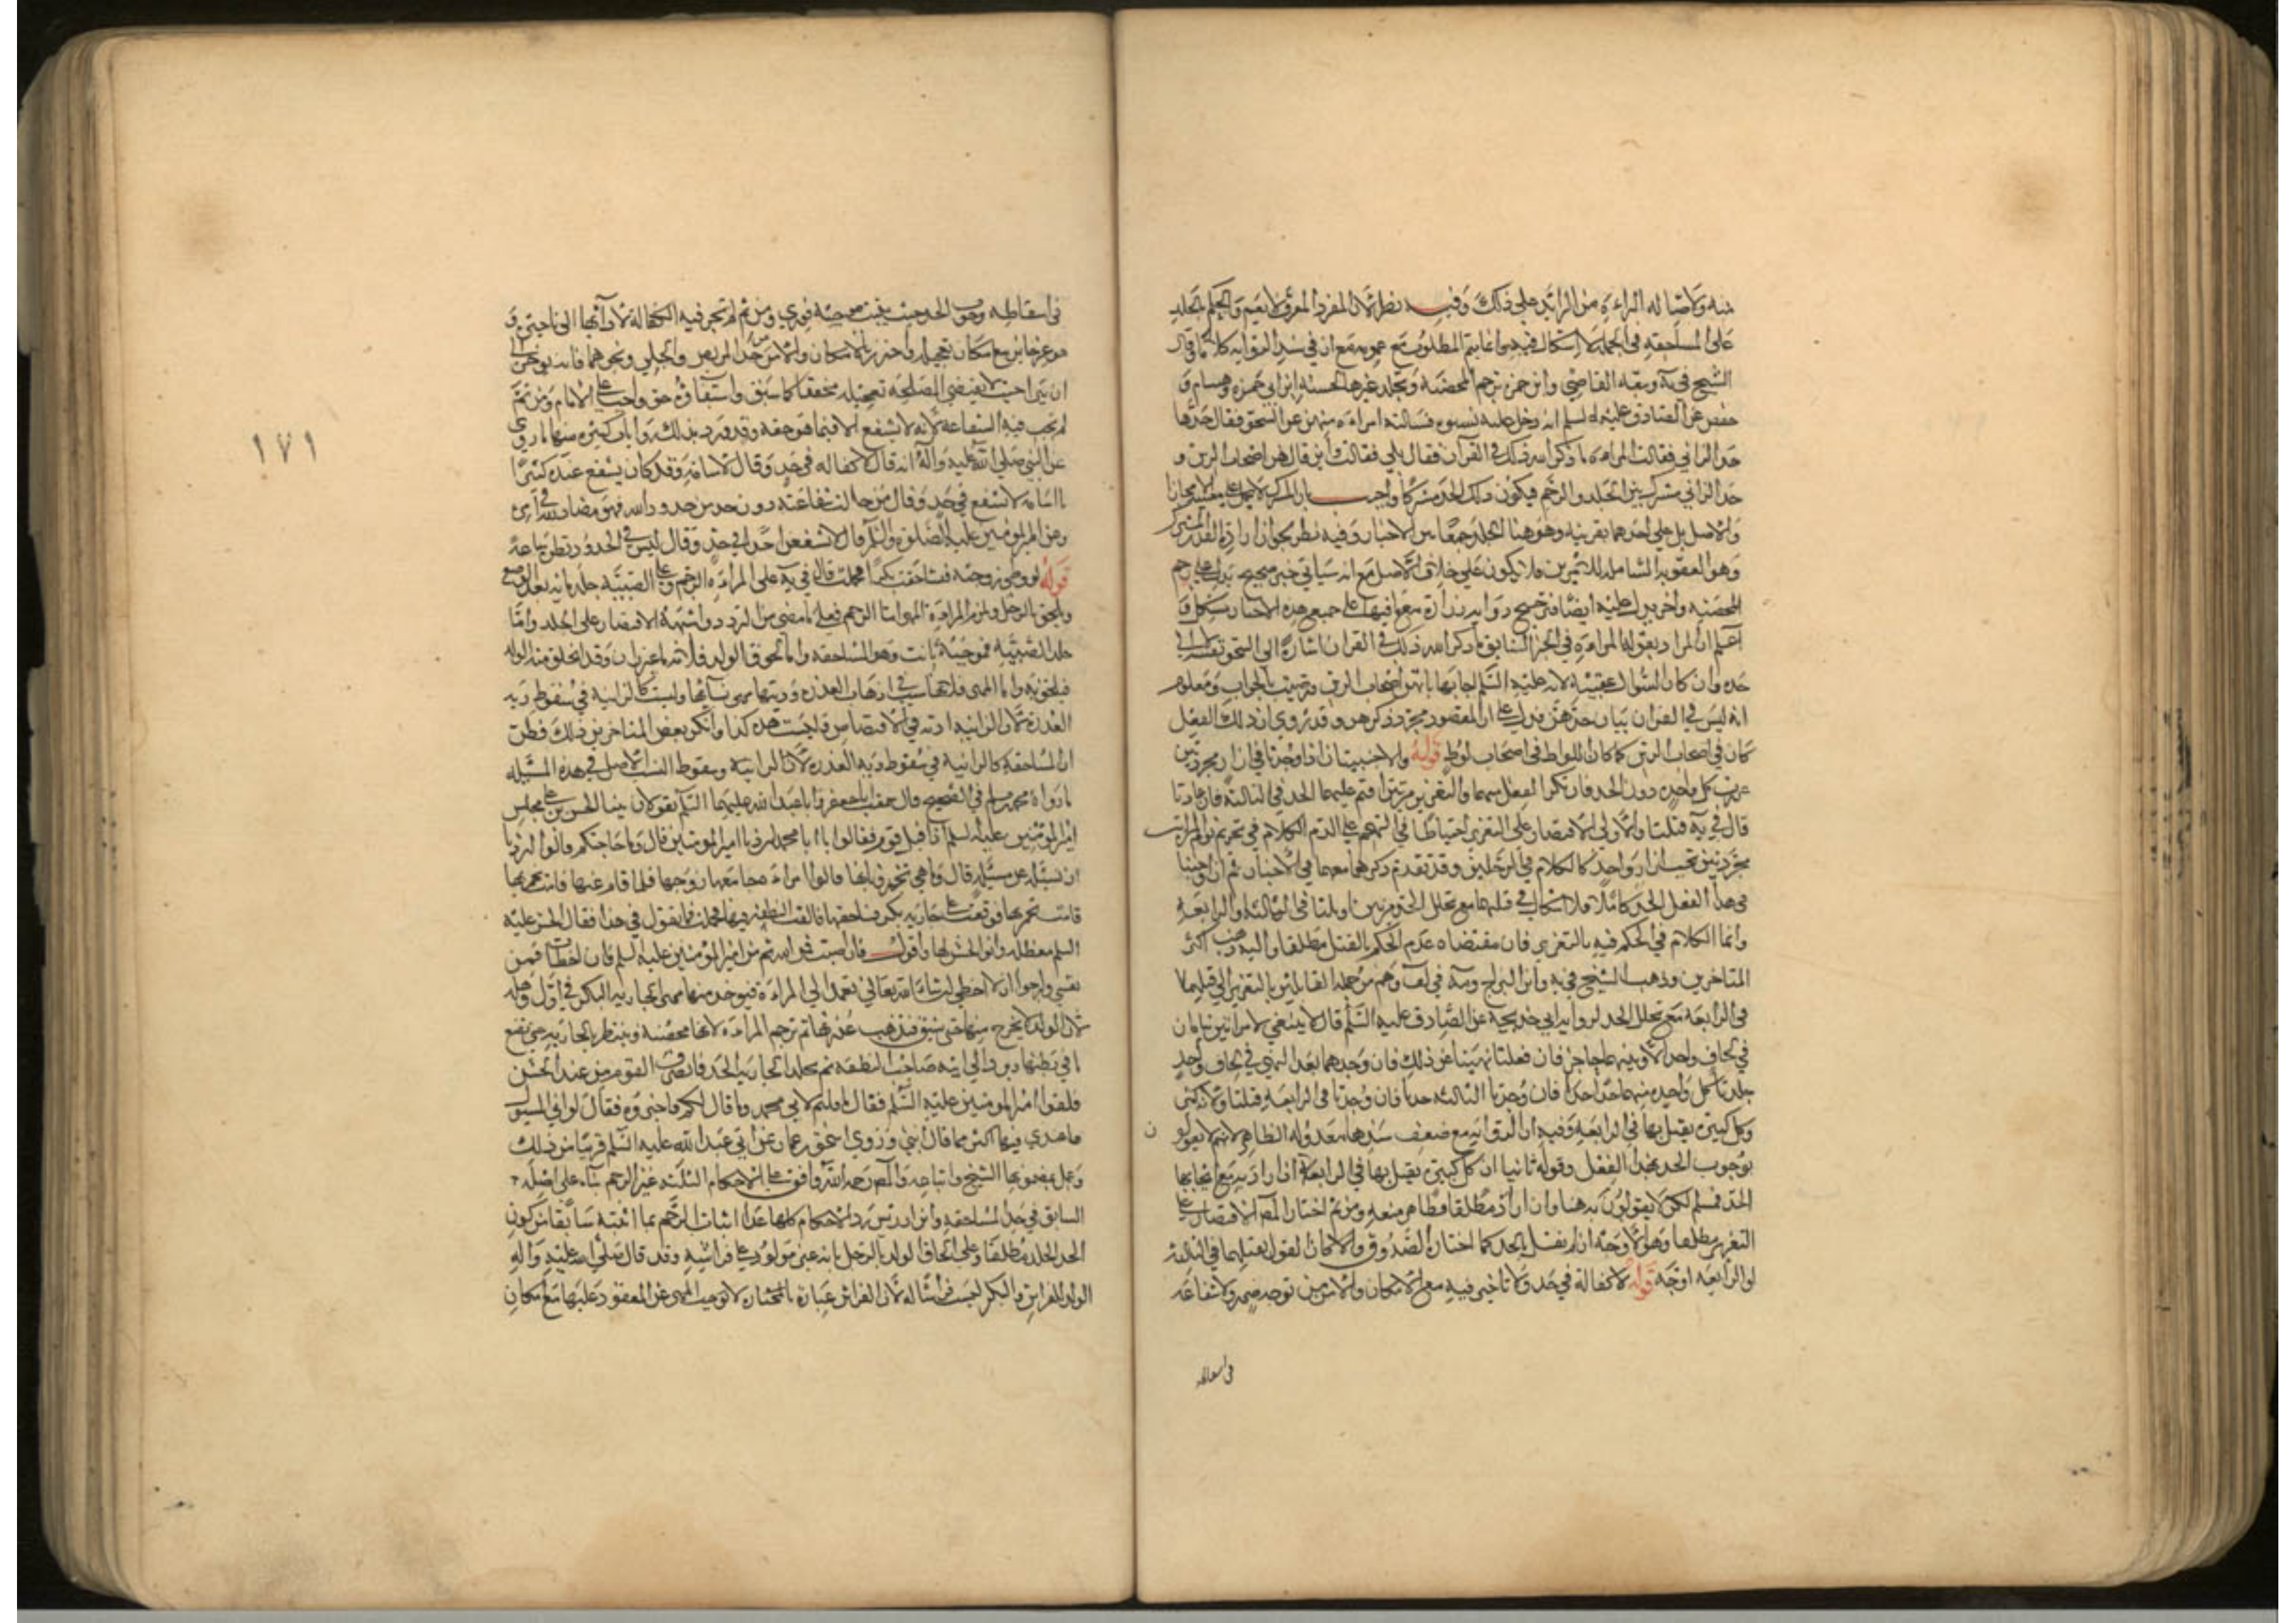 منه ولاضاله المراءة من الزائد على ذلك وفيه نظر لان المفرد المعرف لا يعم والحكم بجلد
على المساحقة في الجملة لا اشكال فيه وانما يتم المطلوب مع عمومه مع ان في سند الرواية كلاما وقال
الشيخ في ية وتبعه القاضي وابن حمزة ترجم المحصنة وتجلد غيرها لحسنة ابن ابي حمزة وهشام و
حفص عن الصادق عليه السلم انه دخل عليه نسوة فسالته امراءة منهن عن السحق فقال حدها
حد الزاني فقالت المراءة ما ذكر الله ذلك في القرآن فقال بلى فقالت واين قال هن اصحاب الرس و
حد الزاني مشترك بين الجلد والرجم فيكون ذلك الحد مشتركا واجيب بان المشترك لا يحمل على معنييه الا مجازا
والاصل بل على احدهما بقرينة وهو هنا الجلد جمعا بين الاخبار وفيه نظر بجواز ارادة القدر المشترك
وهو العقوبة الشاملة للامرين فلا يكون على خلاف الاصل مع انه سياتي خبر صحيح يدل على رجم
المحصنة واخر يدل عليه ايضا فترجيح رواية زرارة مع ما فيها على جميع هذه الاخبار مشكل و
اعلم ان المراد بقول المراءة في الخبر السابق ما ذكر الله ذلك في القران اشارة الى السحق نفسه لا الى
حده وان كان السؤال عقيبه لانه عليه السلم اجابها بانهن اصحاب الرس ورضيت بالجواب ومعلوم
انه ليس في القران بيان حدهن فدل على ان المقصود مجرد ذكرهن وقد روي ان ذلك الفعل
كان في اصحاب الرس كما كان اللواط في اصحاب لوط قوله والاجنبيتان اذا وجدتا في ازار مجردتين
عزرت كل واحدة دون الحد فان تكرر الفعل منهما والتعزير مرتين اقيم عليهما الحد في الثالثة فان عادتا
قال في ية قتلتا والاولى الاقتصار على التعزير احتياطا في التهجم على الدم الكلام في تحريم نوم المراتين
مجردتين تحت ازار واحد كالكلام في الرجلين وقد تقدم ذكرهما معهما في الاخبار ثم ان اوجبنا
في هذا الفعل الحد كاملا فلا اشكال في قتلهما مع تخلل الحد مرتين او ثلثا في الثالثة والرابعة
وانما الكلام في الحكم فيه بالتعزير فان مقتضاه عدم الحكم بالقتل مطلقا واليه ذهب اكثر
المتاخرين وذهب الشيخ في ية وابن البراج ومة في لف وهم من جملة القائلين بالتعزير الى قتلهما
في الرابعة مع تخلل الحد لرواية ابي خديجة عن الصادق عليه السلم قال لا ينبغي لامراتين تنامان
في لحاف واحد الا وبينهما حاجز فان فعلتا نهيتا عن ذلك فان وجدهما بعد النهي في لحاف واحد
جلدتا كل واحدة منهما حدا حدا فان وجدتا الثالثة حدتا فان وجدتا في الرابعة قتلتا ولانه كبيرة
وكل كبيرة يقتل بها في الرابعة وفيه ان الرواية مع ضعف سندها معدولة الظاهر لانهم لا يقولون
بوجوب الحد بهذا الفعل وقوله ثانيا ان كل كبيرة يقتل بها في الرابعة اذا اراد به مع ايجابها
الحد فمسلم لكن لا يقولون به هنا وان اراد مطلقا فظاهر منعه ومن ثم اختار المص الاقتصار على
التعزير مطلقا وهو الاوجه ان لم نقل بالحد كما اختاره الصدوق والا كان القول بقتلهما في الثالثة
او الرابعة اوجه قوله لا كفالة في حد ولا تاخير فيه مع الامكان والامن من توجه ضرر ولا شفاعة
في اسقاطه
في اسقاطه وجوب الحد حيث يثبت موجبه فوري ومن ثم لم تجر فيه الكفالة لادائها الى تاخيره و
هو غير جائز مع امكان تعجيله واحترز بالامكان والامن من حد المريض والحبلى ونحوهما فانه يؤخر الى
ان يبرا حيث لا يقتضي المصلحة تعجيله مخففا كما سبق واستيفاؤه حق واجب على الامام ومن ثم
لم تجب فيه الشفاعة لانه لا يشفع الا فيما هو حقه وقد ورد بذلك روايات كثيرة منها ما روي
عن النبي صلى الله عليه وآله انه قال لا كفالة في حد وقال لاسامة وقد كان يشفع عنده كثيرا
يا اسامة لا تشفع في حد وقال من حالت شفاعته دون حد من حدود الله فهو مضاد لله في امره
وعن امير المؤمنين عليه الصلوة والسلم قال لا تشفعن احدا في حد وقال ليس في الحدود نظر ساعة
قوله لو وطئ زوجته فساحقت بكرا فحملت قال في ية على المراءة الرجم وعلى الصبية جلد ماية بعد الوضع
ويلحق بالرجل ويلزم المراءة المهر اما الرجم فعلى ما مضى من التردد واشبهه الاقتصار على الجلد واما
جلد الصبية فموجبه ثابت وهو المساحقة واما لحوق الولد فلانه ماء غير زان وقد انخلق منه الولد
فيلحق به واما المهر فلانها سبب في اذهاب العذرة وديتها مهر نسائها وليست كالزانية في سقوط دية
العذرة لان الزانية اذنت في الافتضاض وليست هذه كذا وانكر بعض المتاخرين ذلك فظن
ان المساحقة كالزانية في سقوط دية العذرة لان الزانية وسقوط النسب الاصل في هذه المسئلة
ما رواه محمد بن مسلم في الصحيح قال سمعت ابا جعفر وابا عبد الله عليهما السلم يقولان بينا الحسن بن علي في مجلس
امير المؤمنين عليه السلم اذ اقبل قوم فقالوا يا ابا محمد اردنا امير المؤمنين قال وما حاجتكم قالوا اردنا
ان نسئله عن مسئلة قال وما هي تخبرونا بها قالوا امراءة جامعها زوجها فلما قام عنها قامت بحموتها
قامت بحموتها فوقعت على جارية بكر فساحقتها فالقت النطفة فيها فحملت فما تقول في هذا فقال الحسن عليه
السلم معضلة وابو الحسن لها واقول فان اصبت فمن الله ثم من امير المؤمنين عليه السلم فان اخطات فمن
نفسي وارجوا ان لا اخطي ان شاء الله تعالى تعمد الى المراءة فيوخذ منها مهر الجارية البكر في اول وهلة
لان الولد لا يخرج منها حتى يشق فتذهب عذرتها ثم ترجم المراءة لانها محصنة وينتظر بالجارية حتى تضع
ما في بطنها ويرد الى ابيه صاحب النطفة ثم تجلد الجارية الحد فانصرف القوم من عند الحسن
فلقوا امير المؤمنين عليه السلم فقال ما قلتم لابي محمد وما قال لكم فاخبروه فقال لو اني المسئول
ما عندي فيها اكثر مما قال ابني وروى اسحق بن عمار عن ابي عبد الله عليه السلم قريبا من ذلك
وعمل بمضمونها الشيخ واتباعه والمص رحمه الله وافق على الاحكام الثلثة غير الرجم بناء على اصله
السابق في حد المساحقة وابن ادريس رد الاحكام كلها عدا اثبات الرجم بما اثبته سابقا من كون
الحد الجلد مطلقا وعلى الحاق الولد بالرجل بانه غير مولود على فراشه وقد قال صلى الله عليه وآله
الولد للفراش والبكر ليست فراشا له لان الفراش عبارة المختار لا توجب المهر عن المعقود عليها مع امكان
١٧١